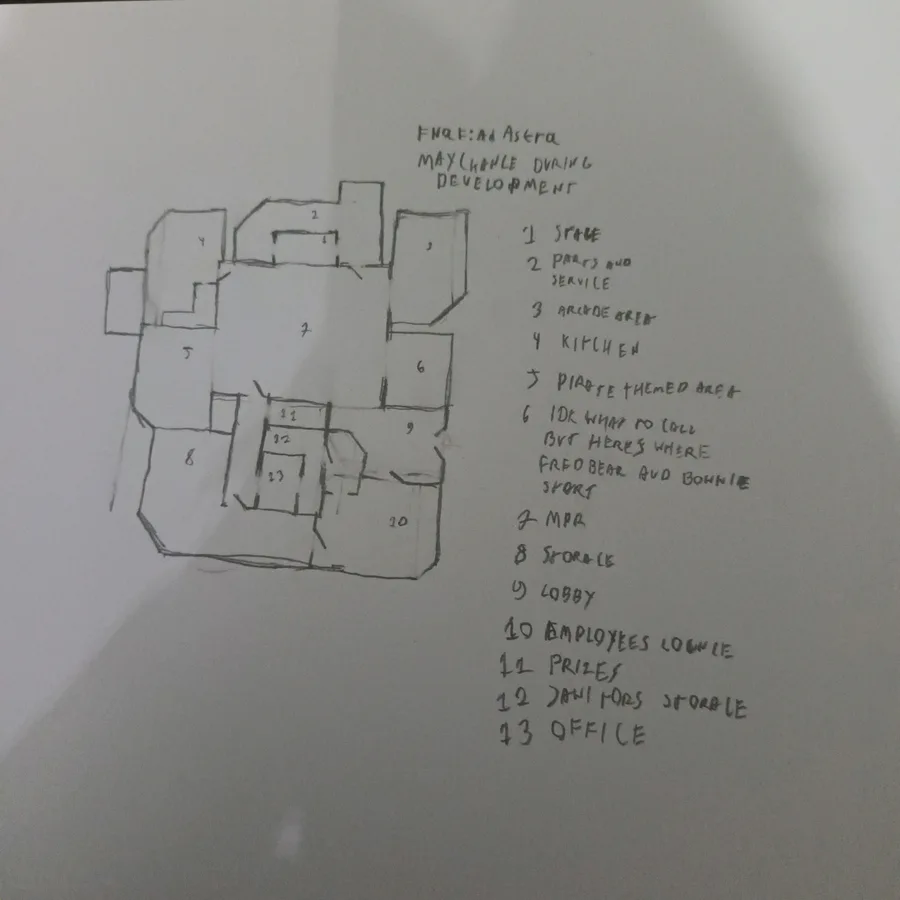 FNAF: Ad Astra
MAY CHANGE DURING
DEVELOPMENT
1 STAGE
2 PARTS AND
SERVICE
3 ARCADE AREA
4 KITCHEN
5 PIRATE THEMED AREA
6 IDK WHAT TO CALL
BUT HERE'S WHERE
FREDBEAR AND BONNIE
START
7 MPR
8 STORAGE
9 LOBBY
10 EMPLOYEES LOUNGE
11 PRIZES
12 JANITORS STORAGE
13 OFFICE
2
4
1
3
7
5
6
11
9
12
8
13
10